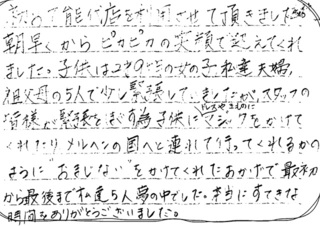 初めて能代店を利用させて頂きました。
朝早くからピカピカの笑顔で迎えてくれ
ました。子供は2才9ヶ月の女の子、私達夫婦、
祖父母の5人で少し緊張して
ましたが、スタッフの
皆様が緊張をほぐす為子供にマジックをかけて
くれたりメルヘンの国へと連れて行ってくれるかの
ように"おまじない"をかけてくれたおかげで最初
から最後まで私達5人夢の中でした。本当にすてきな
時間をありがとうございました。